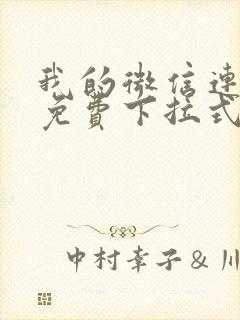 我的微信连
免费下拉式
中村幸子&川